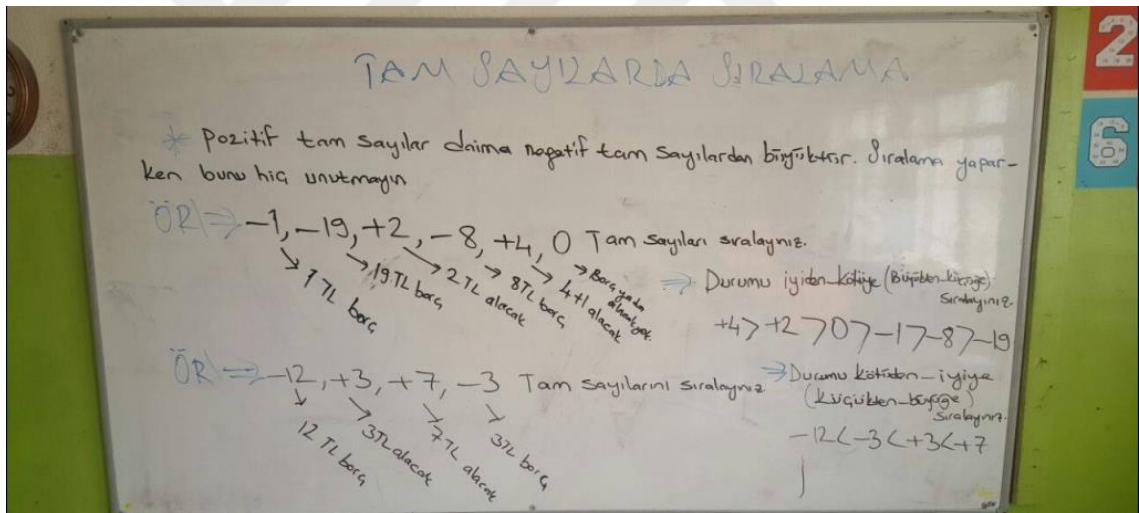 TAM SAYILARDA SIRALAMA
* Pozitif tam sayılar daima negatif tam sayılardan büyüktür. Sıralama yapar-
ken bunu hiç unutmayın
ÖR ⇒ -1, -19, +2, -8, +4, 0 Tam sayıları sıralayınız.
1 TL borç
19 TL borç
2 TL alacak
8 TL borç
4 tl alacak
Borç yada
alacak yok.
⇒ Durumu iyiden-kötüye (Büyükten-küçüğe)
Sıralayınız.
+4 > +2 > 0 > -1 > -8 > -19
ÖR ⇒ -12, +3, +7, -3 Tam sayılarını sıralayınız
12 TL borç
3TL alacak
7TL alacak
3TL borç
⇒ Durumu kötüden-iyiye
(küçükten-büyüğe)
Sıralayınız.
-12 < -3 < +3 < +7
2
6